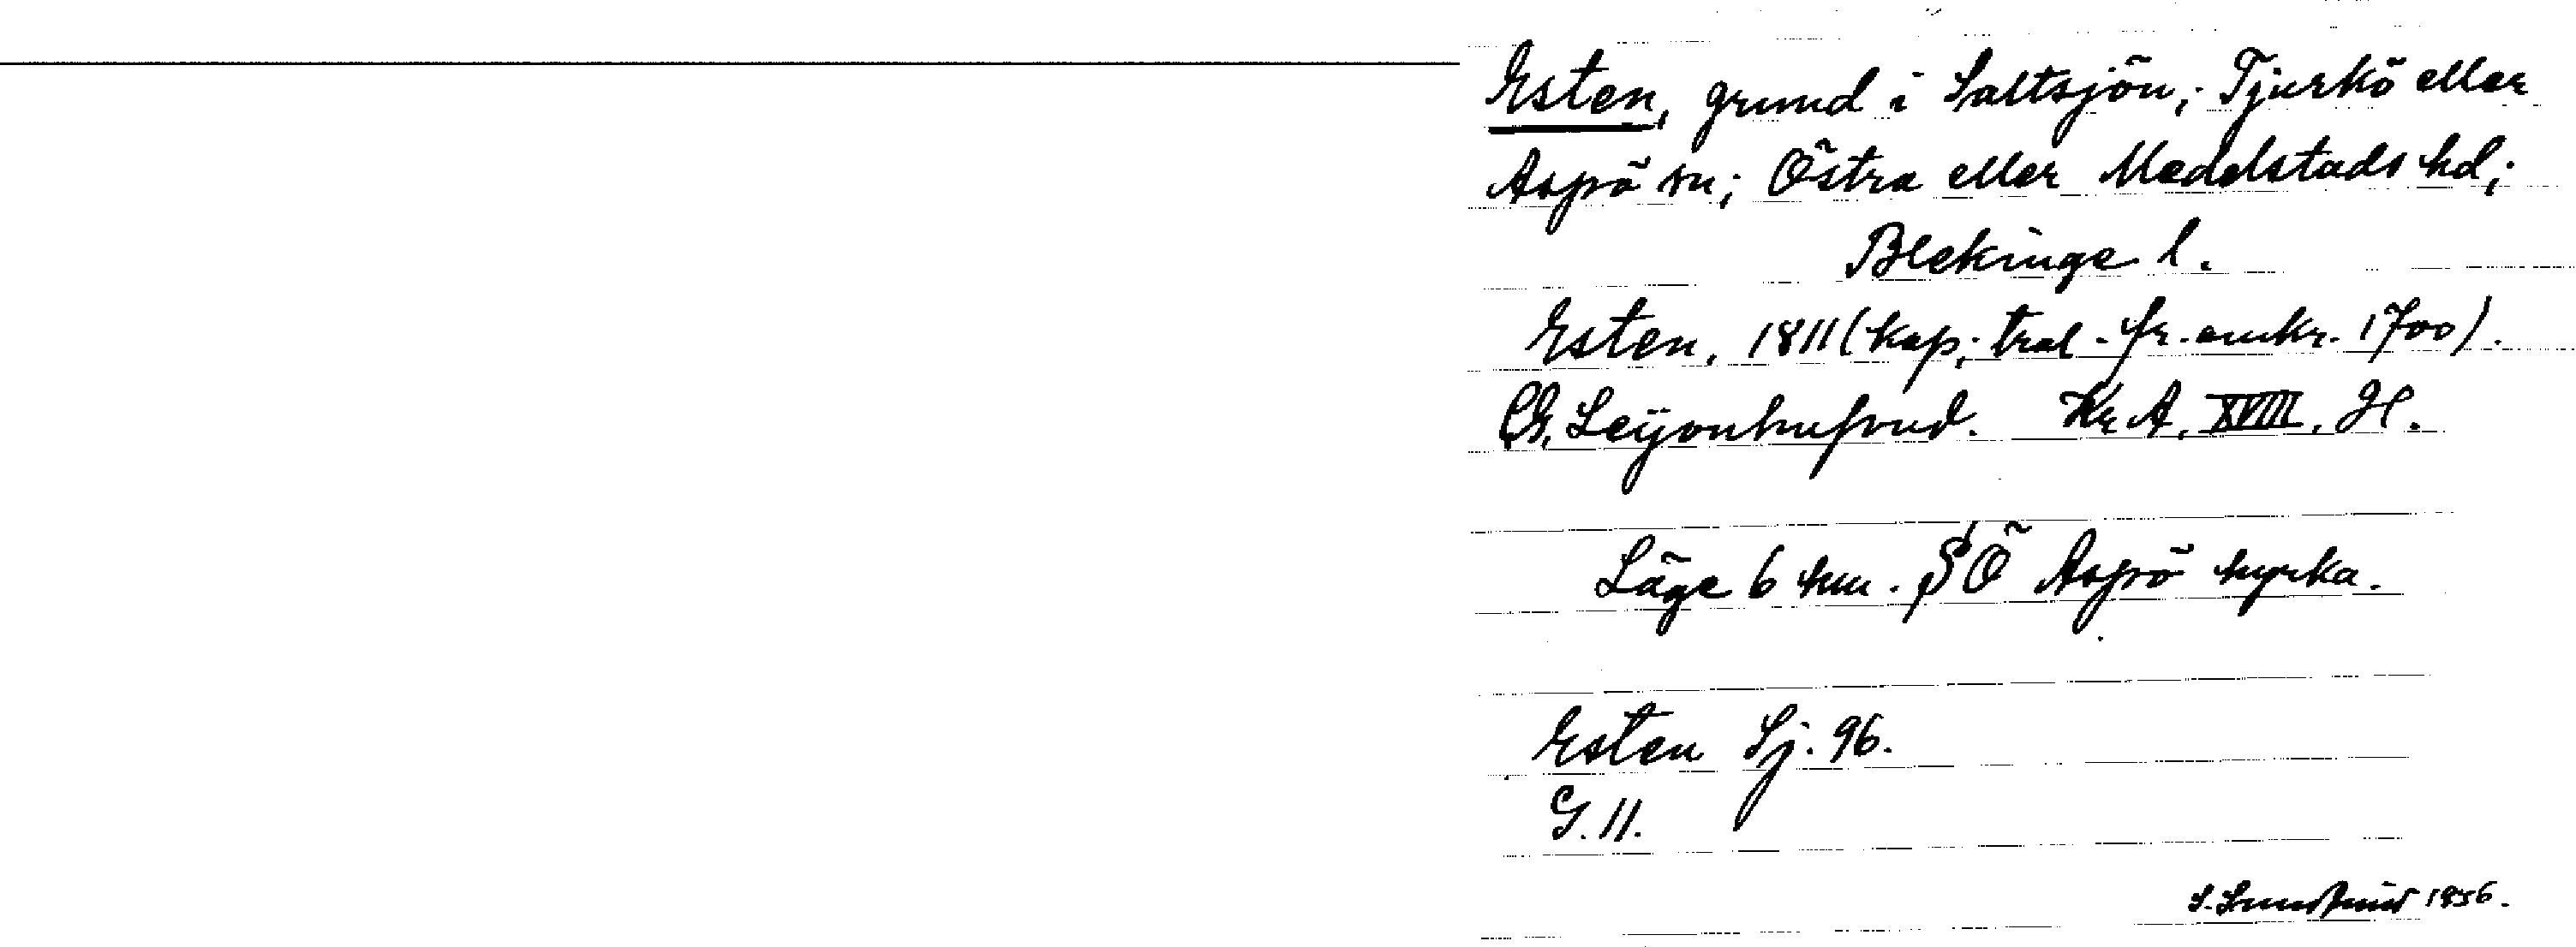 Esten, grund i Saltsjön; Tjurkö eller
Aspö sn; Östra eller Medelstads hd;
Blekinge l.
Esten, 1811 (kop; trol. fr. omkr. 1700).
CG. Leijonhufvud. Kr A, XVIII, H.
Läge 6 km. SÖ Aspö kyrka.
Esten Sj. 96.
G. 11.
S. 1956.